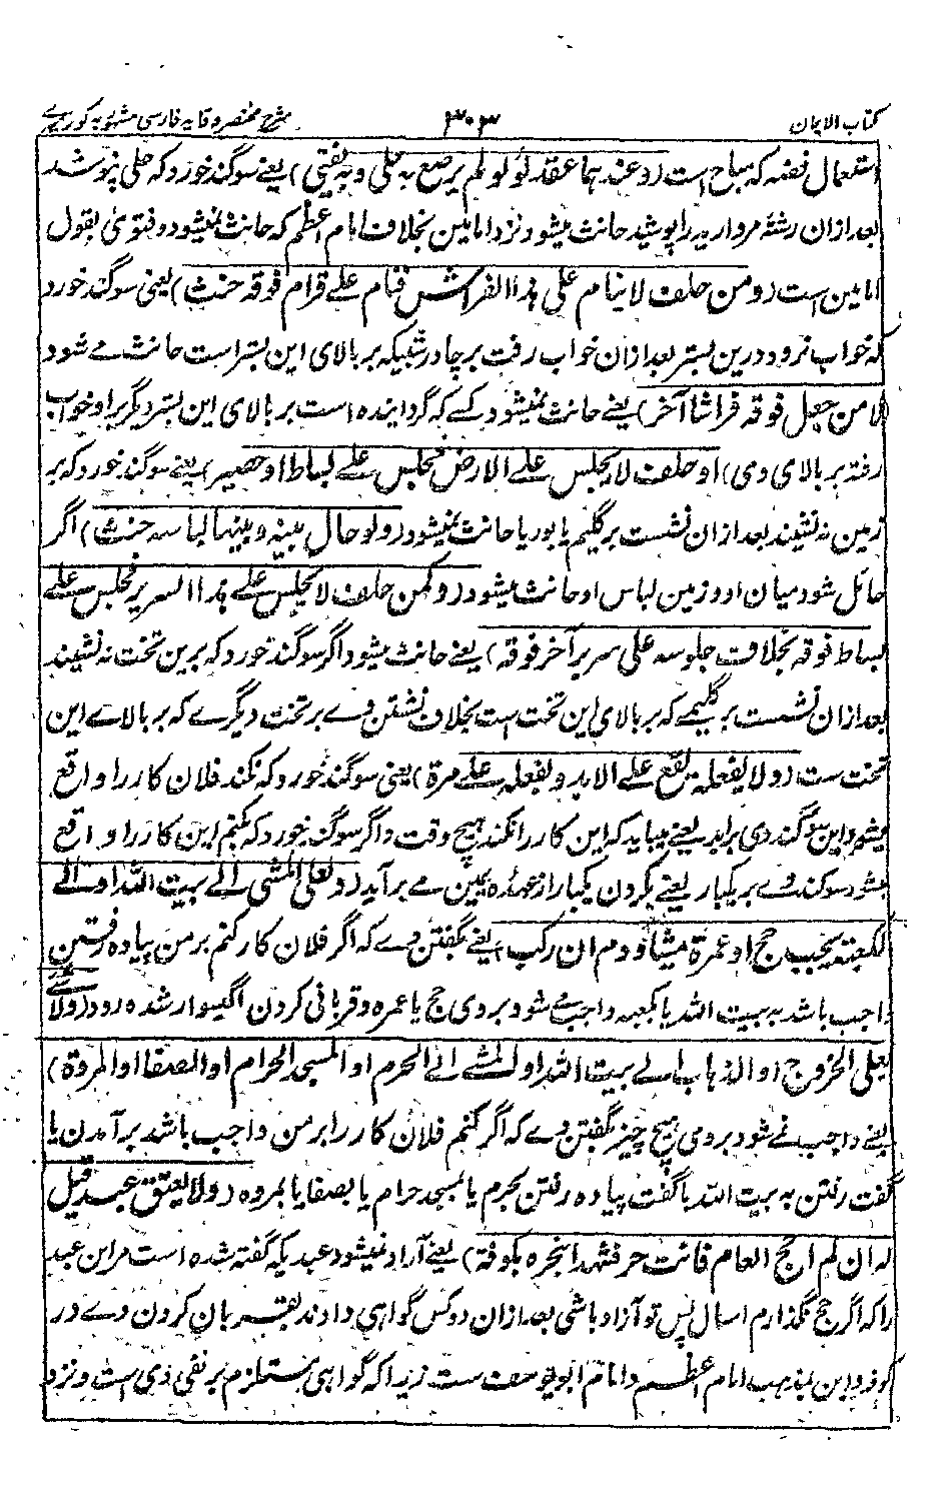 کتاب الایمان
۳۰۳
شرح مختصر وقایه فارسی مشهور به کورے
استعمال نقضه که مباح است (و عندهما عقد لؤلؤ لم یرصع به حلی و به یفتی) یعنے سوگند خورد که حلی نپوشد
بعد ازان رشتهٔ مروارید را پوشید حانث میشود نزد امامین بخلاف امام اعظم که حانث نمیشود و فتوی بقول
امامین است (و من حلف لا ینام علی هذا الفراش فنام علے قرام فوقه حنث) یعنی سوگند خورد
که خواب نرود درین بستر بعد ازان خواب رفت بر چادر شبیکه بر بالای این بستر است حانث مے شود
(لا من جعل فوقه فراشا آخر) یعنے حانث نمیشود کسے که گردانیده است بر بالای این بستر دیگر براو خواب
رفته بر بالای وی (او حلف لا یجلس علے الارض فجلس علے بساط او حصیر) یعنے سوگند خورد که بر
زمین نه نشیند بعد ازان نشست بر گلیم یا بوریا حانث نمیشود (و لو حال بینه و بینها لباسه حنث) اگر
حائل شود میان او و زمین لباس او حانث میشود (و کمن حلف لا یجلس علے هذا السریر فجلس علے
بساط فوقه بخلاف جلوسه علی سریر آخر فوقه) یعنے حانث میشود اگر سوگند خورد که برین تخت نه نشیند
بعد ازان نشست بر گلیمے که بر بالای این تخت است بخلاف نشستن وے بر تخت دیگرے که بر بالاے این
تخت ست (و لا یفعله یقع علے الابد و یفعله علے مرة) یعنی سوگند خورد که نکند فلان کار را واقع
میشود این سوگند وی برابد یعنے میباید که این کار را نکند هیچ وقت و اگر سوگند خورد که بکنم این کار را واقع
میشود سوگند وے بر یکبار یعنے بکردن یکبار از عهده یمین مے برآید (و بعلی المشی الے بیت الله او الے
الکعبة یجب حج او عمرة مشیا و دم ان رکب) یعنے بگفتن وے که اگر فلان کار کنم بر من پیاده رفتن
واجب باشد به بیت الله یا بکعبه واجب مے شود بر وی حج یا عمره و قربانی کردن اگر سوار شده رود (و لا شے
بعلی الخروج او الذهاب الے بیت الله او المشے الے الحرم او المسجد الحرام او الصفا او المروة)
یعنے واجب نمے شود بر وی هیچ چیز بگفتن وے که اگر کنم فلان کار را بر من واجب باشد برآمدن یا
گفت رفتن به بیت الله یا گفت پیاده رفتن بحرم یا بمسجد حرام یا بصفا یا بمروه (و لا یعتق عبد قیل
له ان لم احج العام فانت حر فشهدا بنحره بکوفة) یعنے آزاد نمیشود عبدیکه گفته شده است مر این عبد
را که اگر حج نگذارم امسال پس تو آزاد باشی بعد ازان دو کس گواهی دادند بقربان کردن وے در
کوفه و این بمذهب امام اعظم و امام ابو یوسف ست زیرا که گواهی مستلزم بر نفی وی است و نزد